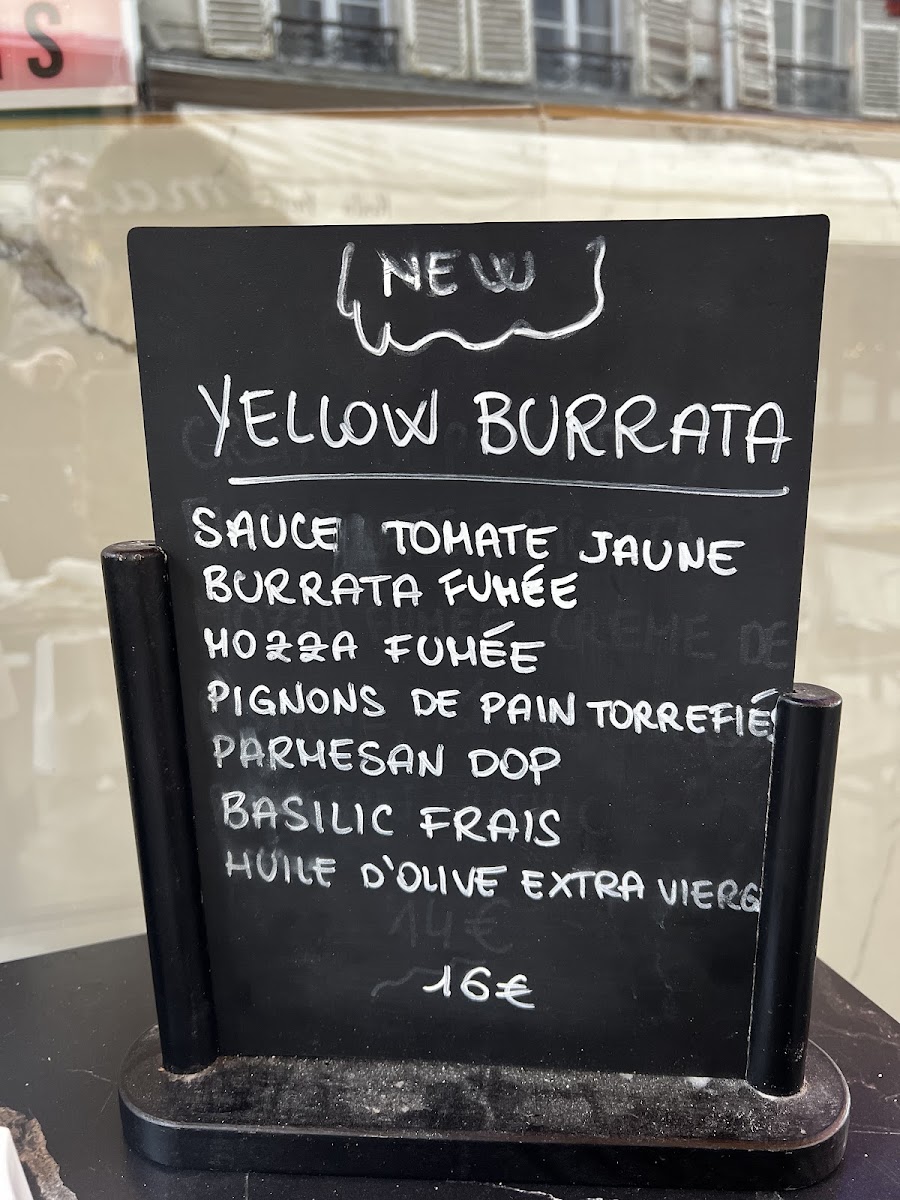 S
NEW
YELLOW BURRATA
SAUCE TOMATE JAUNE
BURRATA FUMÉE
MOZZA FUMÉE
PIGNONS DE PAIN TORREFIÉS
PARMESAN DOP
BASILIC FRAIS
HUILE D'OLIVE EXTRA VIERG
14€
16€